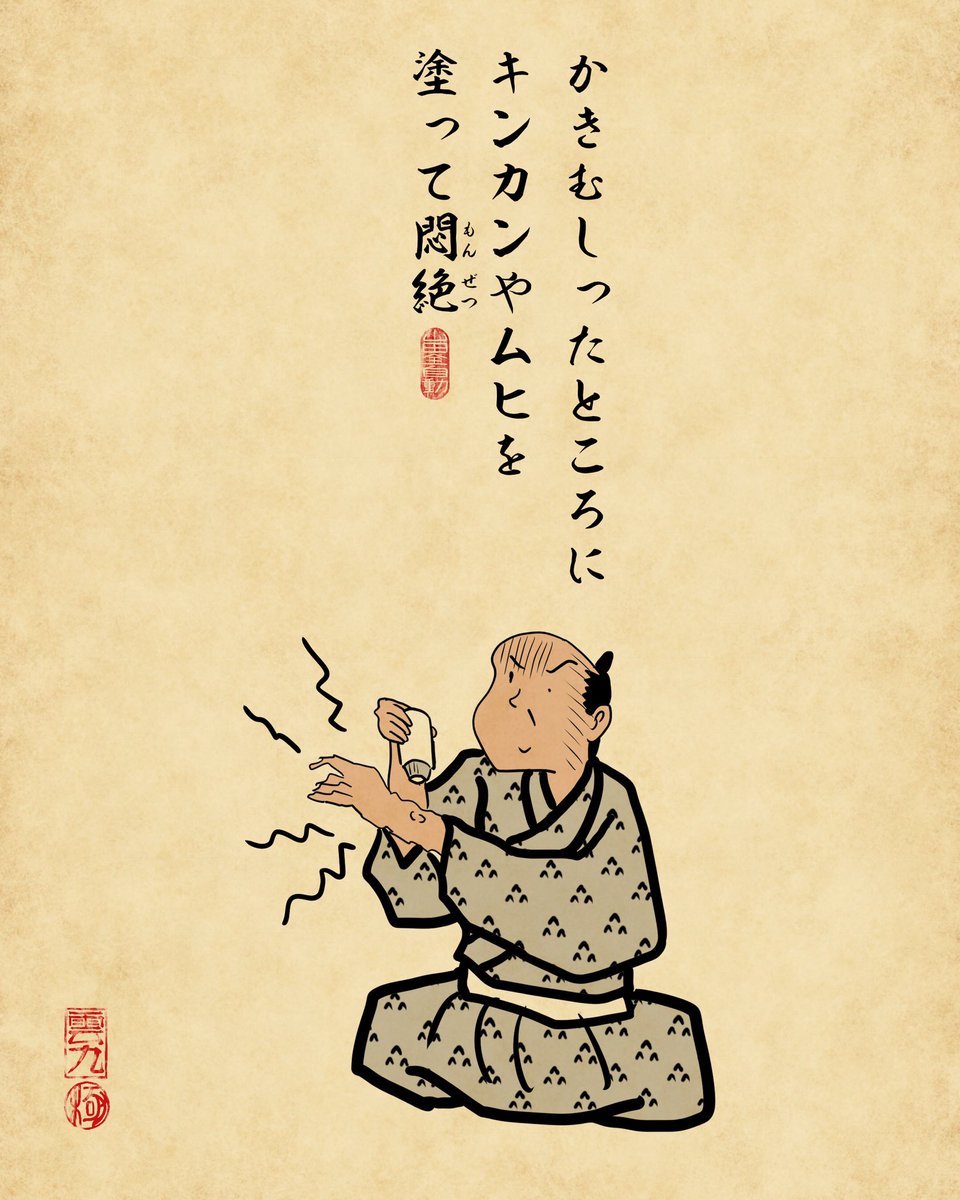 かきむしったところに
キンカンやムヒを
塗って悶絶
もんぜつ